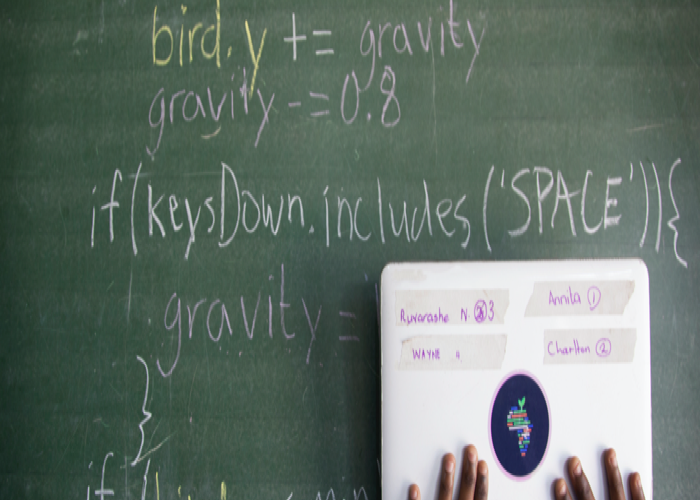 bird.y += gravity
gravity -= 0.8
if(keysDown.includes('SPACE')){
gravity =
}
if (bird
Ruvarashe N. 3
Annita 1
WAYNE 4
Charlton 2